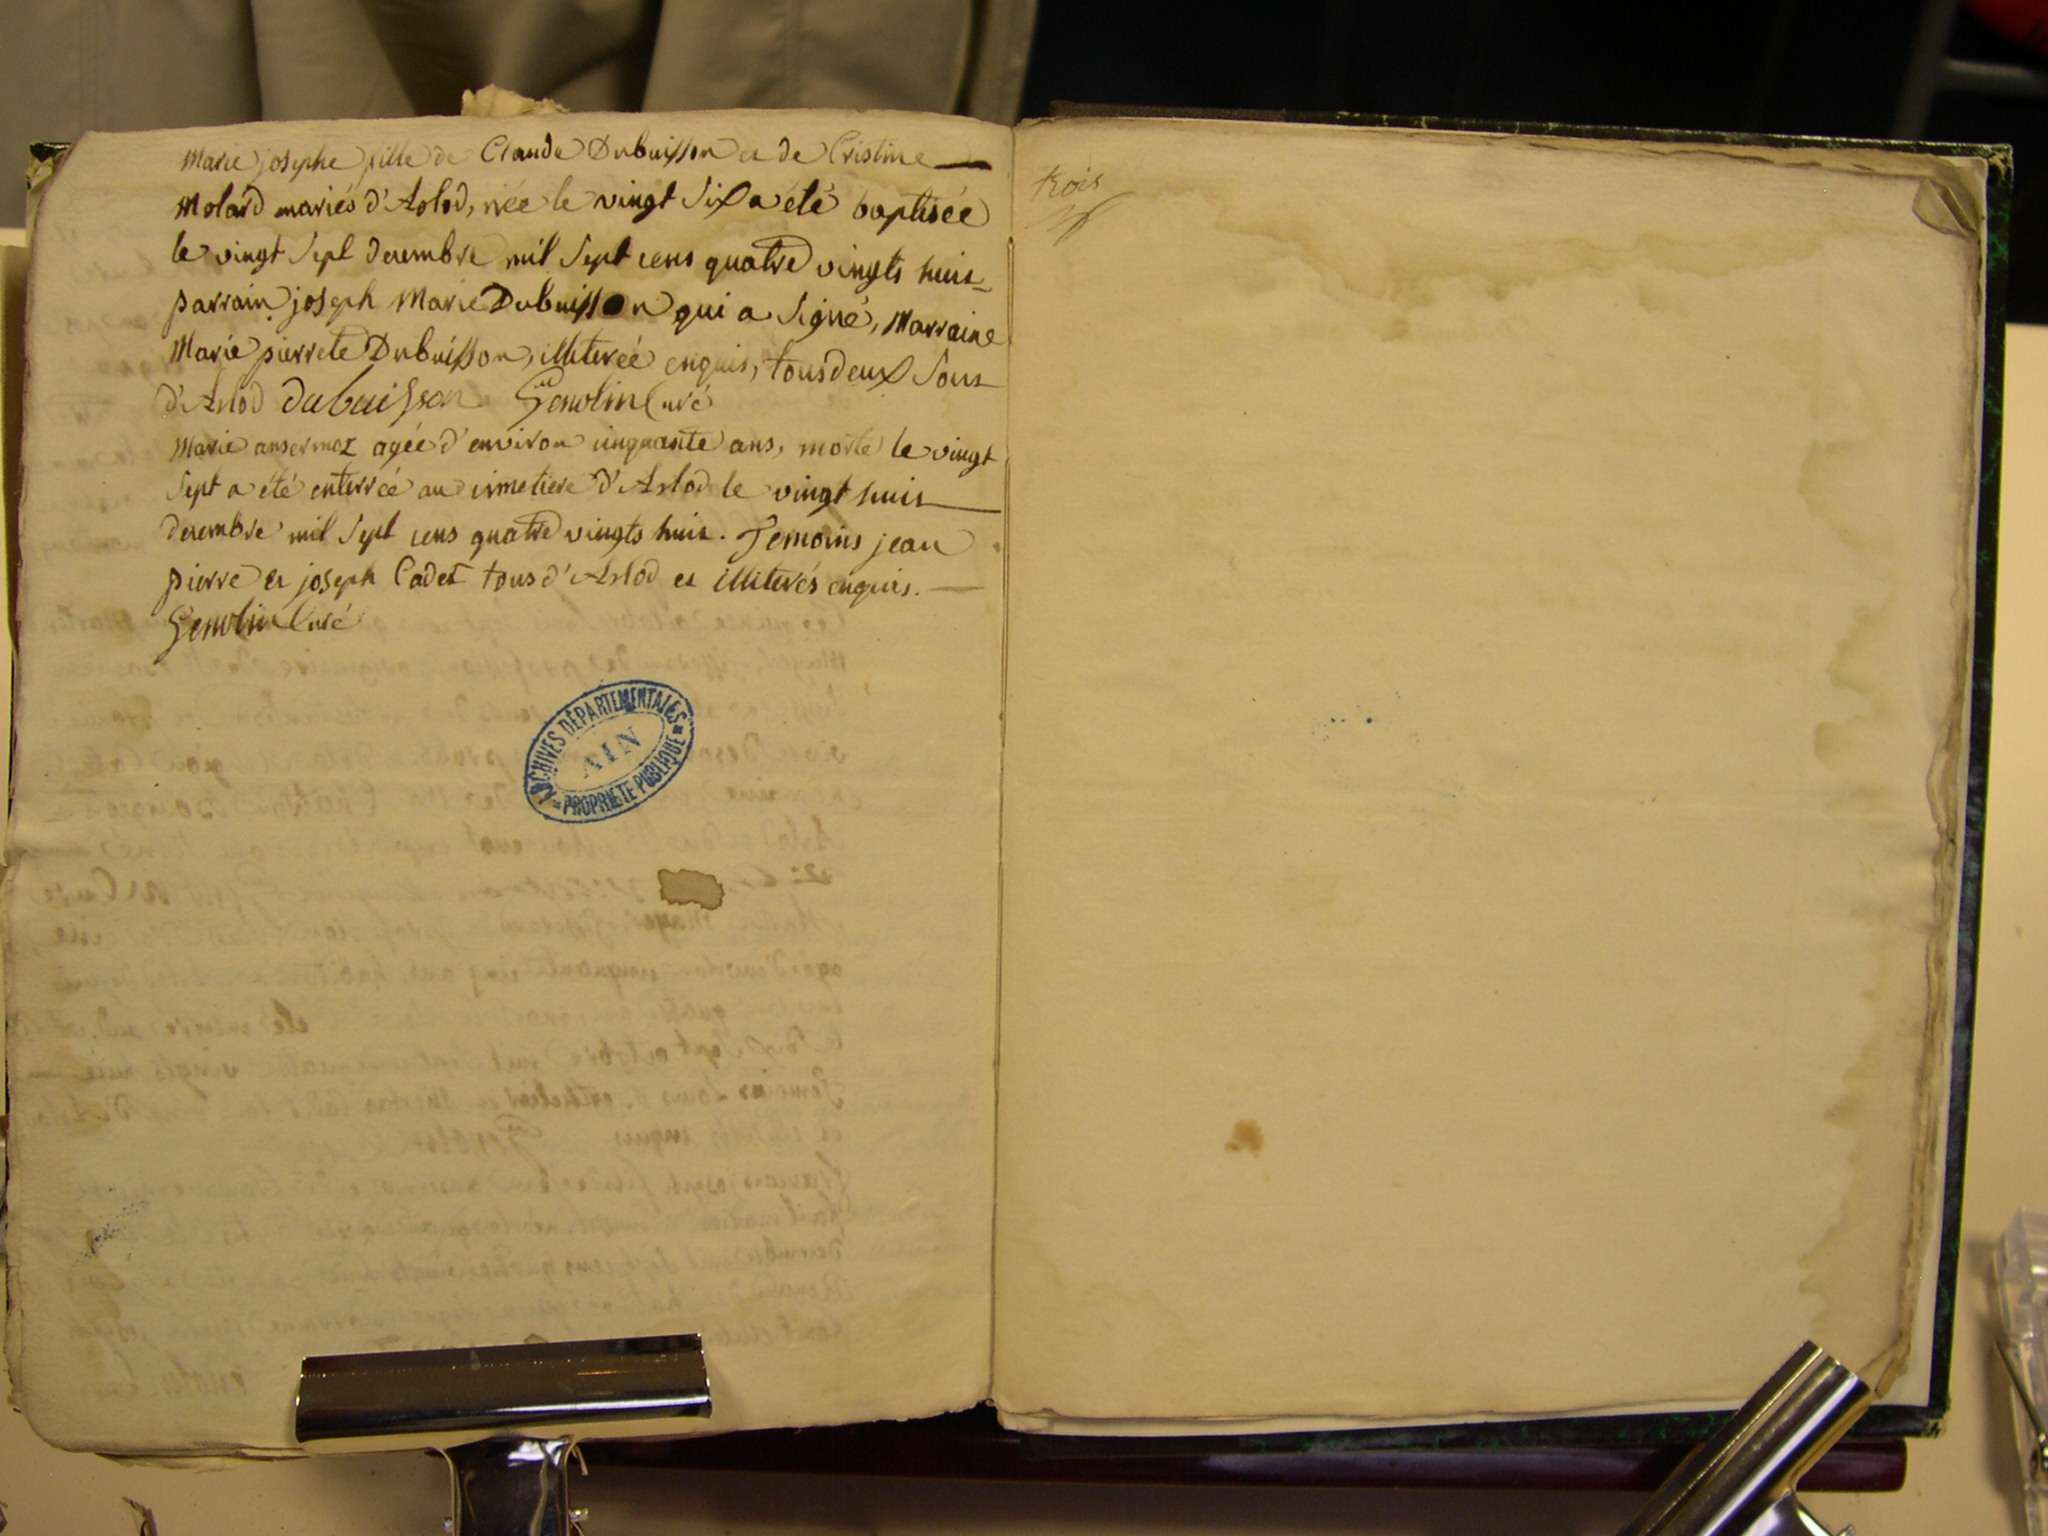 Marie josephe fille de Claude Dubuisson et de Cristine
Molard mariés d'Arlod, née le vingt six a été baptisée
le vingt sept decembre mil sept cens quatre vingts huit
parrain joseph Marie Dubuisson qui a signé, Marraine
Marie pierrete Dubuisson, illiterée enquis, tous deux sont
d'Arlod dubuisson Genolin Curé
Marie ansermoz agée d'environ cinquante ans, morte le vingt
sept a été enterrée au cimetiere d'Arlod le vingt huit
decembre mil sept cens quatre vingts huit. Temoins jean
pierre et joseph Cadet tous d'Arlod et illiterés enquis.
Genolin Curé
ARCHIVES DÉPARTEMENTALES
AIN
PROPRIÉTÉ PUBLIQUE
trois